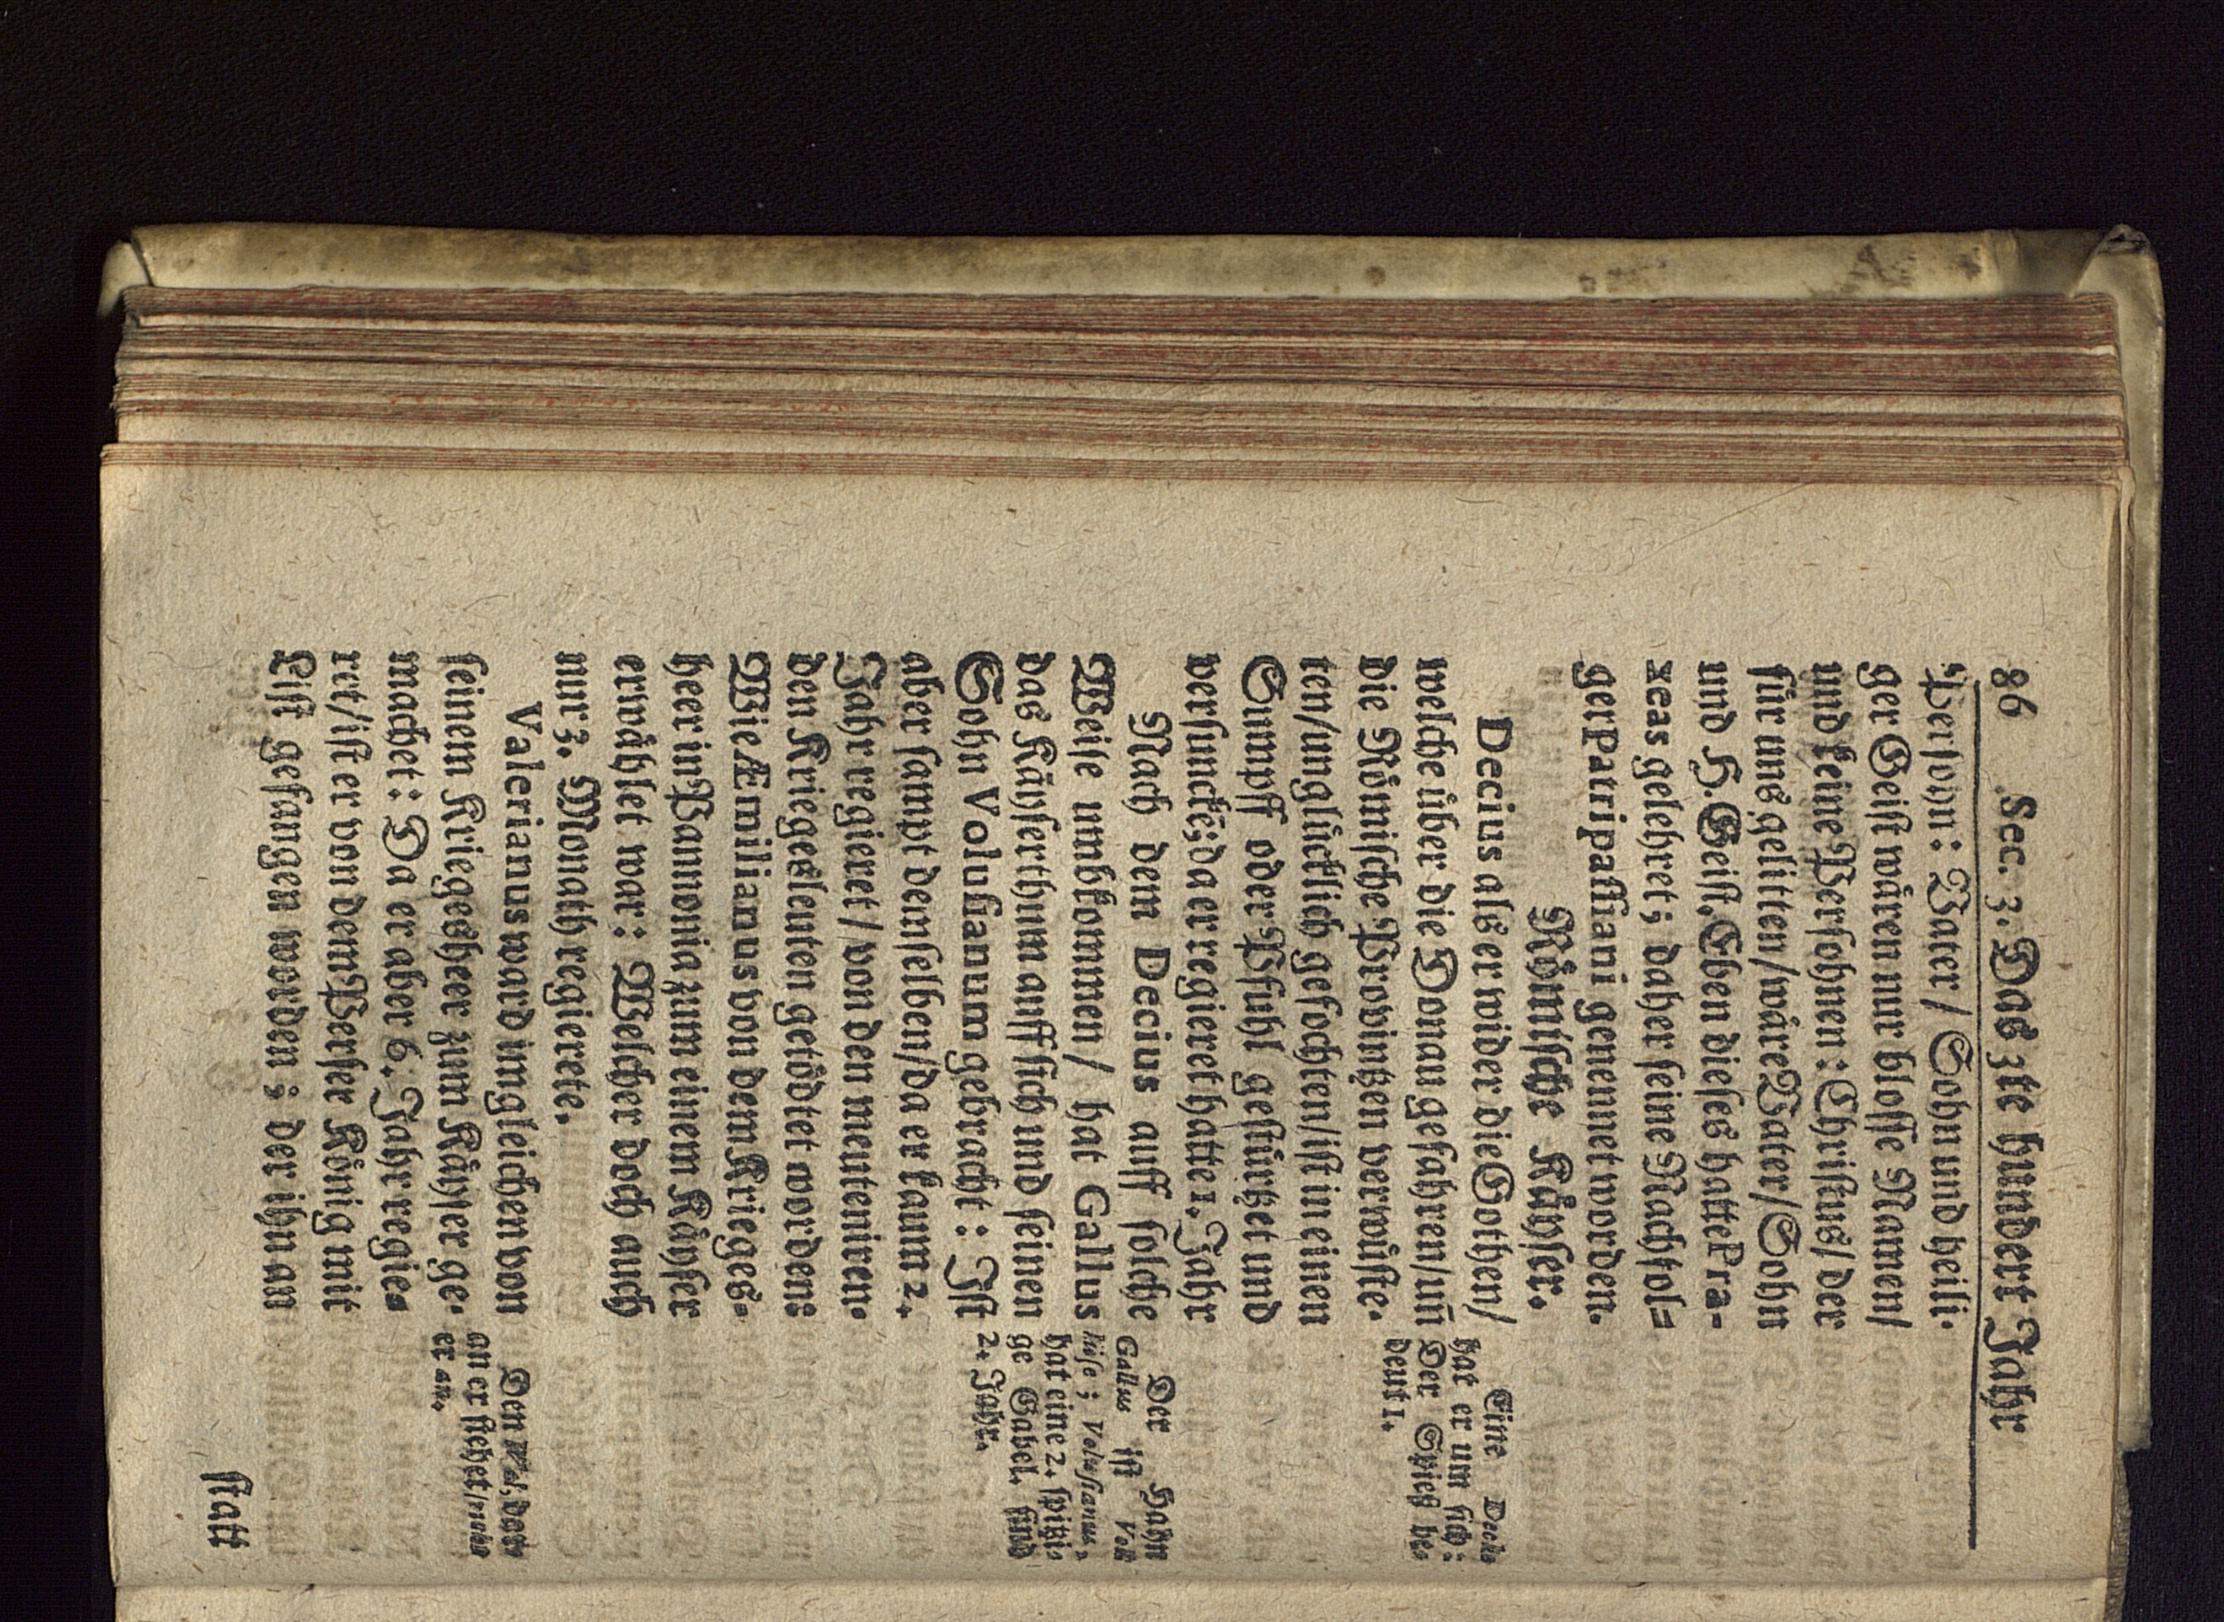 86 Sec. 3. Das 3te hundert Jahr
Persohn: Vater / Sohn und heili-
ger Geist wären nur blosse Namen/
und keine Persohnen: Christus/ der
für uns gelitten/ wäre Vater/ Sohn
und H. Geist. Eben dieses hatte Pra-
xeas gelehret; daher seine Nachfol=
ger Patripassiani genennet worden.
Römische Käyser.
Decius als er wider die Gothen/
welche über die Donau gefahren/ uñ
die Römische Provintzen verwüste-
ten/ unglücklich gefochten/ ist in einen
Sumpff oder Pfuhl gestürtzet und
versuncke; da er regieret hatte 1. Jahr
Nach dem Decius auff solche
Weise umbkommen/ hat Gallus
das Käyserthum auff sich und seinen
Sohn Volusianum gebracht: Ist
aber sampt denselben/ da er kaum 2.
Jahr regieret/ von den meuteniren-
den Kriegesleuten getödtet worden:
Wie Æmilianus von dem Krieges-
heer in Pannonia zum einem Käyser
erwählet war: Welcher doch auch
nur 3. Monath regierete.
Valerianus ward imgleichen von
seinem Kriegesheer zum Käyser ge-
machet: Da er aber 6. Jahr regie=
ret/ ist er von dem Perser König mit
List gefangen worden; der ihn an
statt
Eine Deck
hat er um sich:
Der Spieß be-
deut 1.
Der Hahn
Gallus ist Vol
lüse; Volusianus,
hat eine 2. spitzi-
ge Gabel. sind
2. Jahr.
Den Wal, dar
an er stehet/
er an.